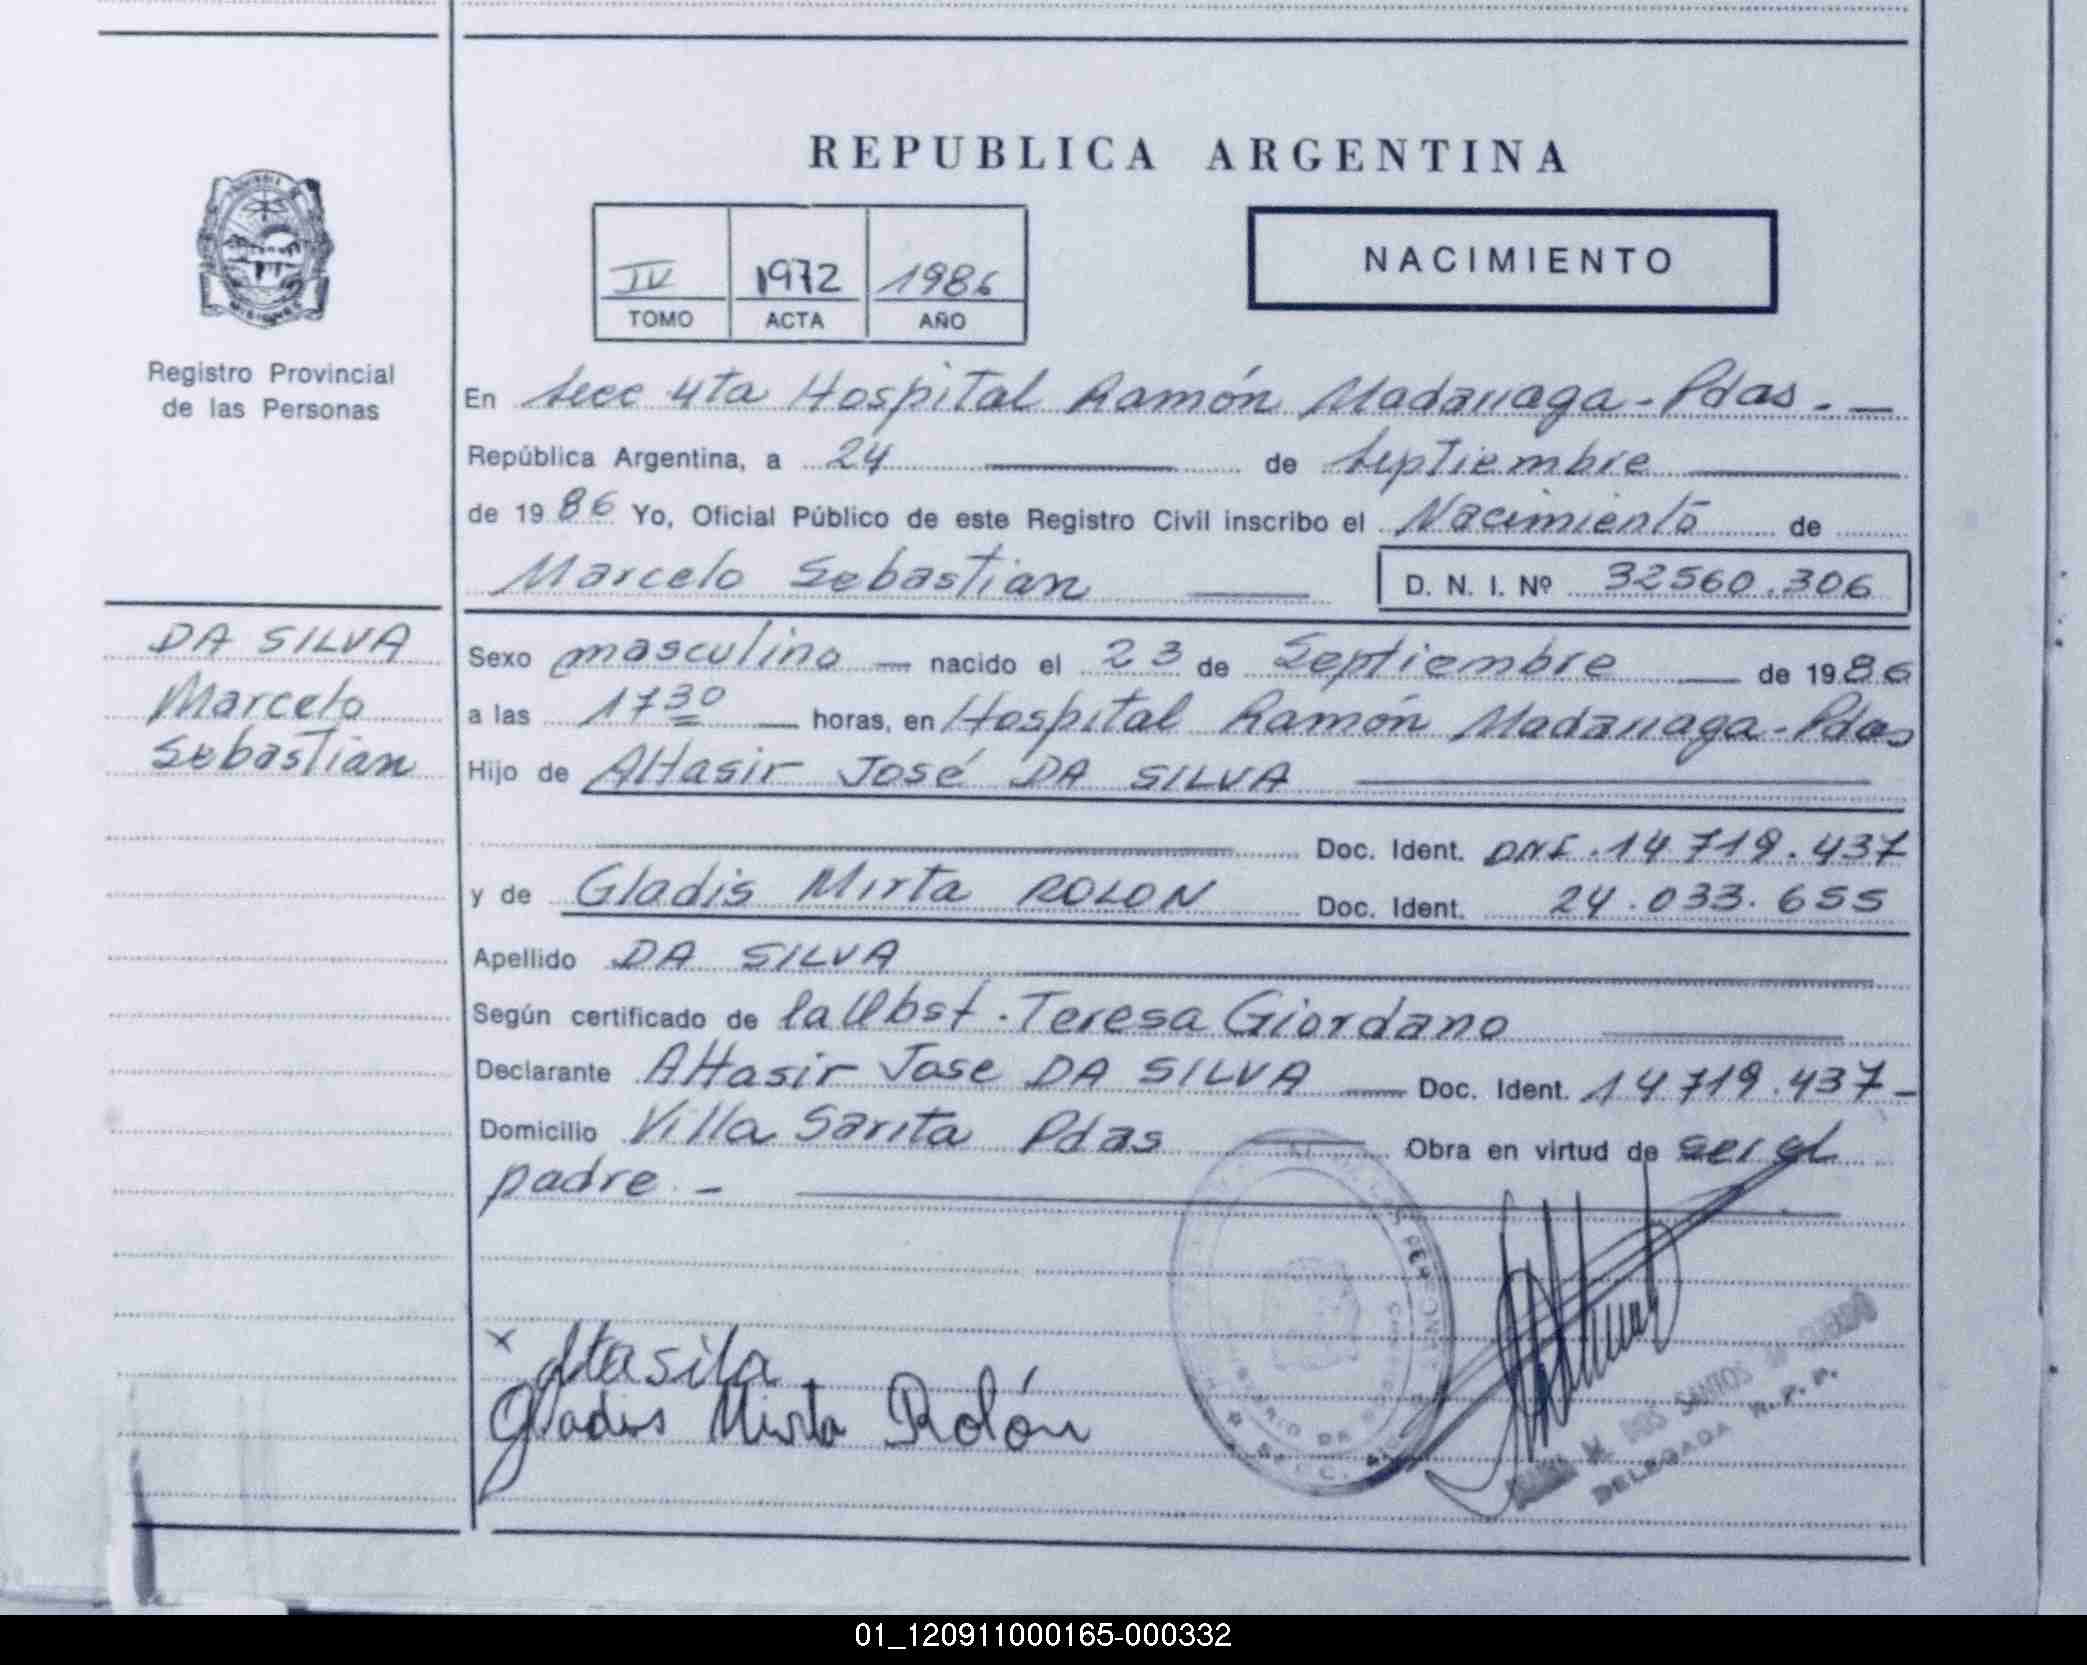 REPUBLICA ARGENTINA
IV 1972 1986
TOMO ACTA AÑO
NACIMIENTO
Registro Provincial
de las Personas
En Secc 4ta Hospital Ramón Madariaga - Pdas. —
República Argentina, a 24 de Septiembre
de 1986 Yo, Oficial Público de este Registro Civil inscribo el Nacimiento de
Marcelo Sebastian D. N. I. Nº 32560.306
DA SILVA
Marcelo
Sebastian
Sexo masculino — nacido el 23 de Septiembre — de 1986
a las 17 30 — horas, en Hospital Ramón Madariaga - Pdas
Hijo de Altasir José DA SILVA
Doc. Ident. DNI. 14.719.437
y de Gladis Mirta ROLON Doc. Ident. 24.033.655
Apellido DA SILVA
Según certificado de la Obst. Teresa Giordano
Declarante Altasir Jose DA SILVA — Doc. Ident. 14.719.437 -
Domicilio Villa Sarita Pdas — Obra en virtud de ser el
padre. -
x Altasila
Gladis Mirta Rolón
M. DOS SANTOS
DELEGADA R. P. P.
01_120911000165-000332